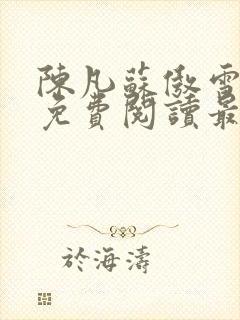 陳凡蘇傲雪
免費閱讀最
於海濤